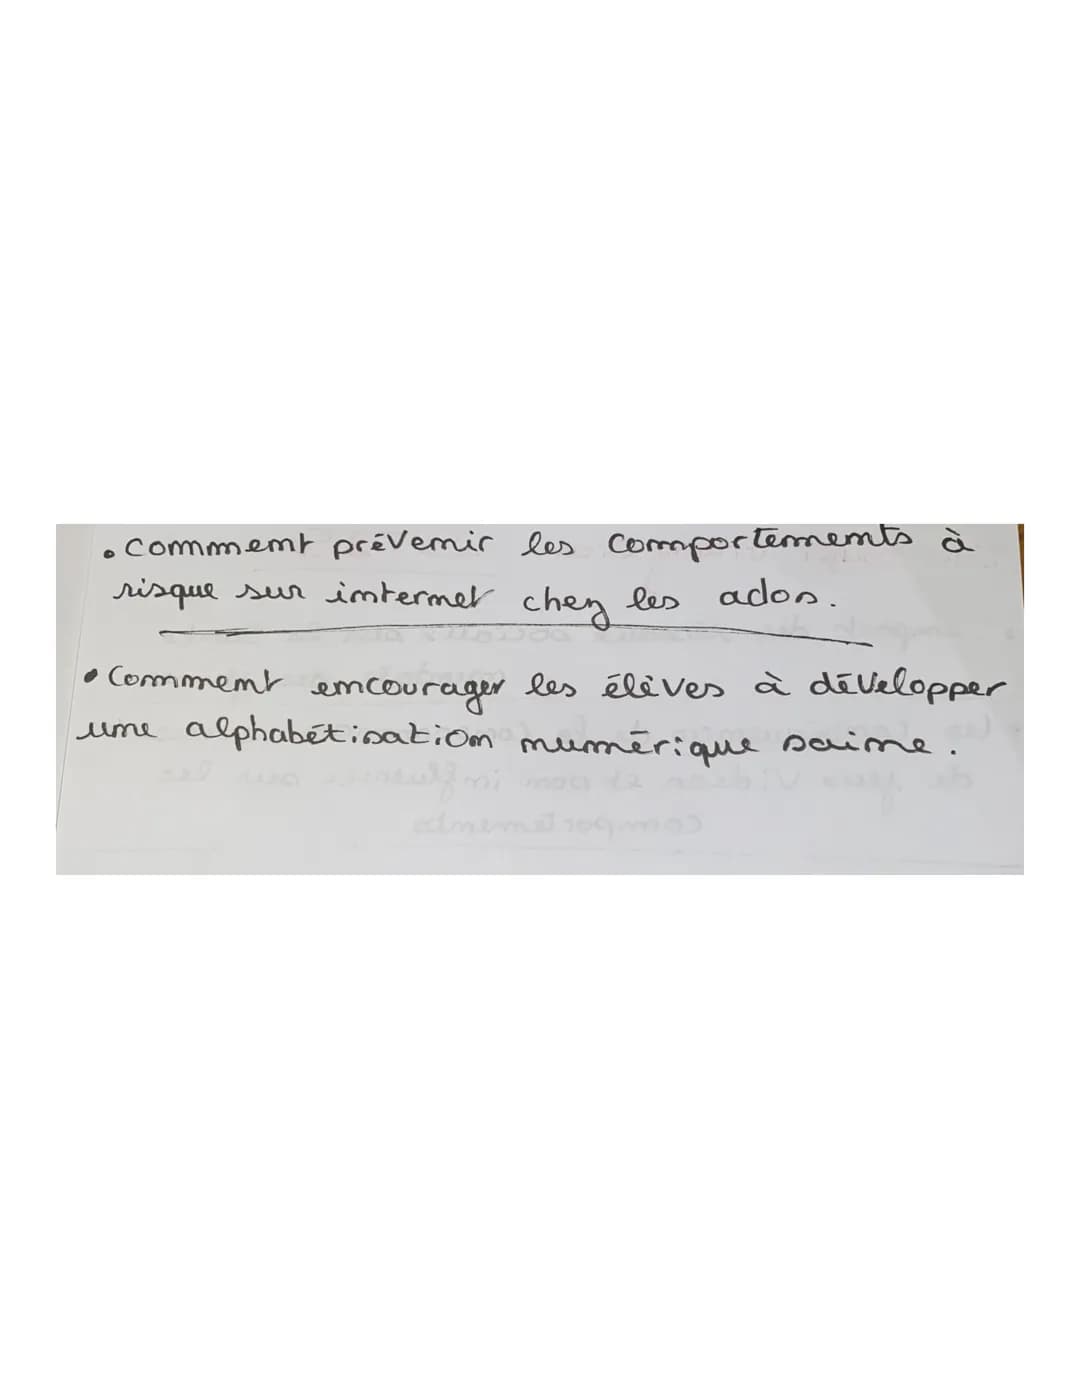 • Comment prévenir les comportements à
risque sur internet chez les ados.
• Comment encourager les élèves à développer
une alphabétisation numérique saine.